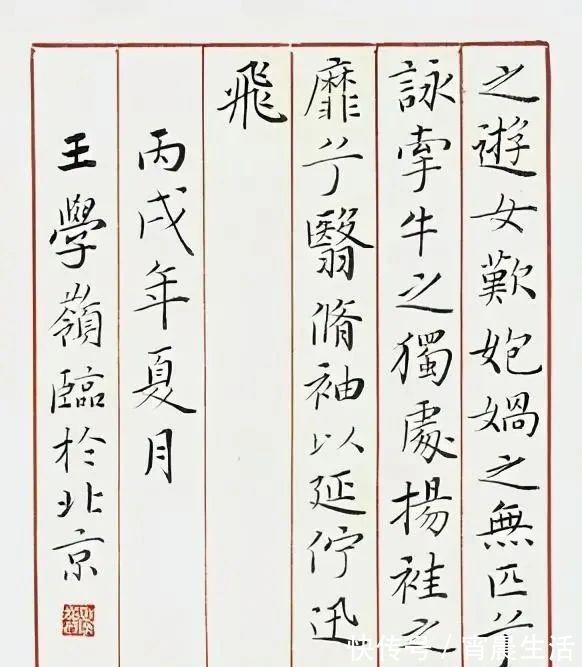 之遊女歎媧之無匹兮
詠牽牛之獨處揚袿之
靡兮翳脩袖以延佇迅
飛
丙戌年夏月
王學嶺臨於北京
快传号 / 宵晨生活